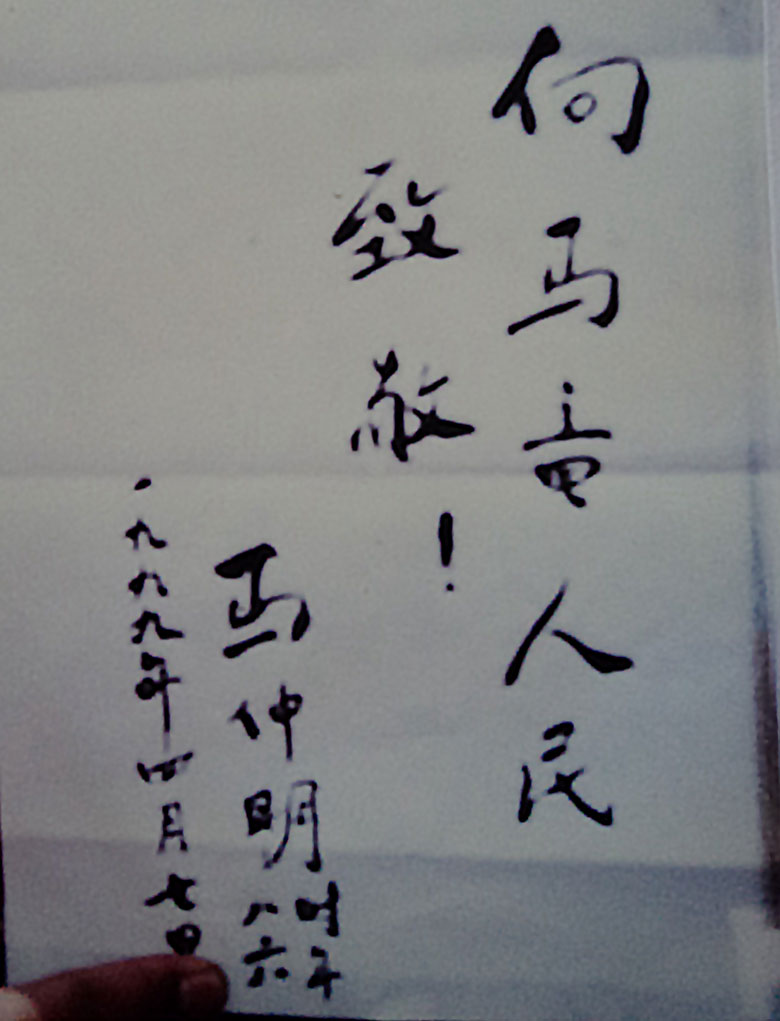 向马竜人民
致敬！
马仲明
时年
八六
一九九九年四月七日